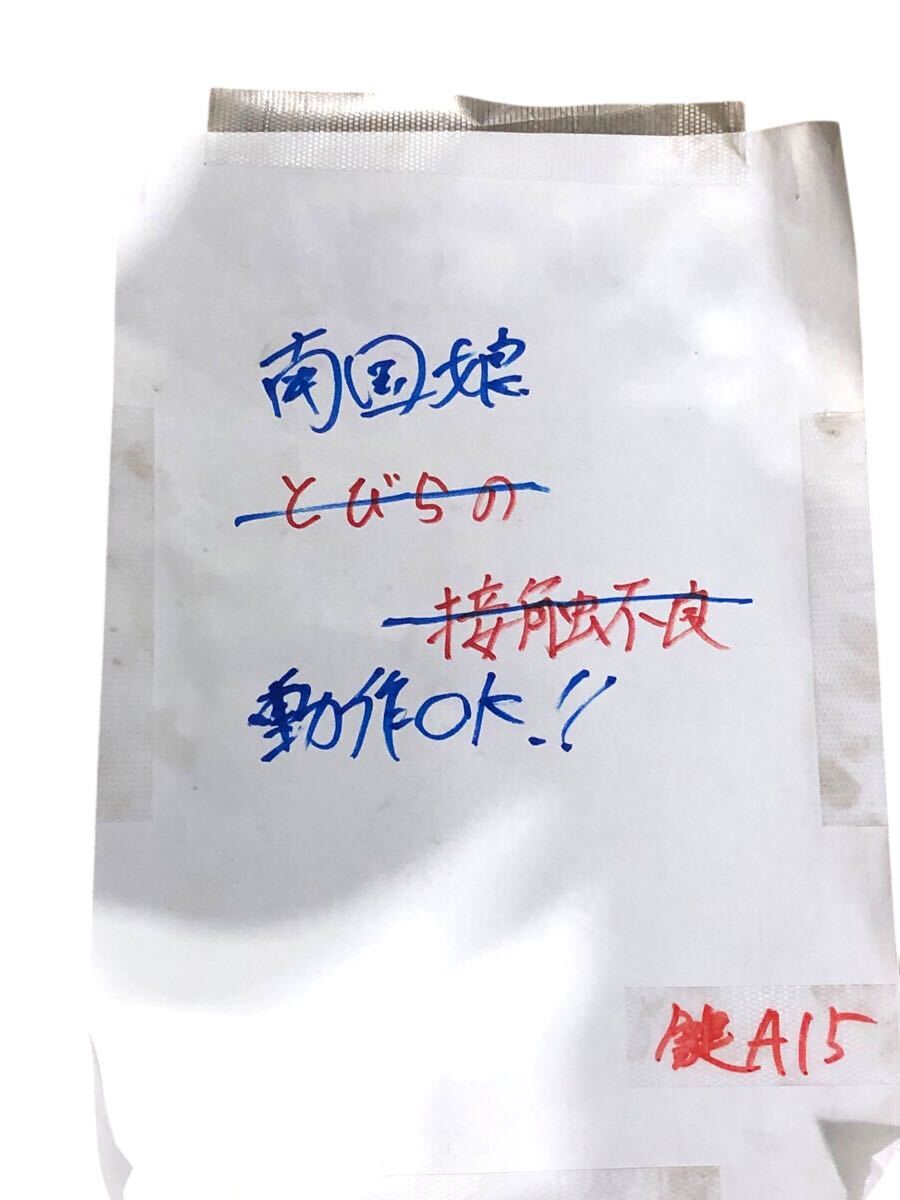 南国娘
とびらの
接触不良
動作OK.!!
鍵A15